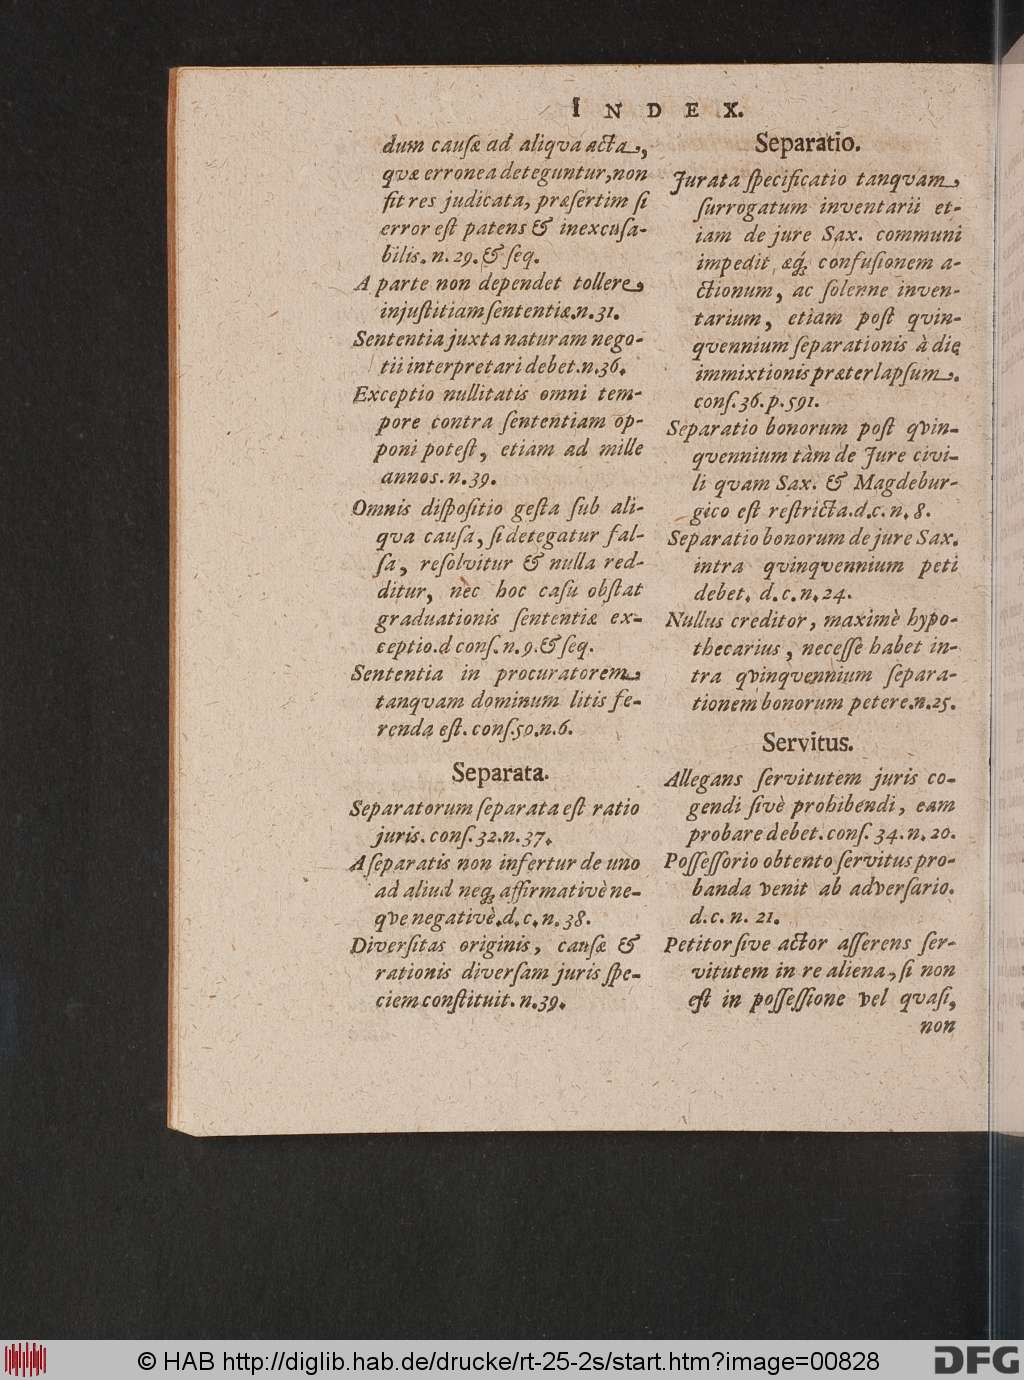 INDEX.
dum causæ ad aliqva acta,
qvæ erronea deteguntur, non
fit res judicata, præsertim si
error est patens & inexcusa-
bilis. n. 29. & seq.
A parte non dependet tollere
injustitiam sententiæ. n. 31.
Sententia juxta naturam nego-
tii interpretari debet. n. 36.
Exceptio nullitatis omni tem-
pore contra sententiam op-
poni potest, etiam ad mille
annos. n. 39.
Omnis dispositio gesta sub ali-
qva causa, si detegatur fal-
sa, resolvitur & nulla red-
ditur, nec hoc casu obstat
graduationis sententiæ ex-
ceptio. d cons. n. 9. & seq.
Sententia in procuratorem
tanqvam dominum litis fe-
renda est. cons. 50. n. 6.
Separata.
Separatorum separata est ratio
juris. cons. 32. n. 37.
A separatis non infertur de uno
ad aliud neq; affirmativè ne-
qve negativè. d. c. n. 38.
Diversitas originis, causæ &
rationis diversam juris spe-
ciem constituit. n. 39.
Separatio.
Jurata specificatio tanqvam
surrogatum inventarii et-
iam de jure Sax. communi
impedit æq; confusionem a-
ctionum, ac solenne inven-
tarium, etiam post qvin-
qvennium separationis à die
immixtionis præterlapsum.
cons. 36. p. 591.
Separatio bonorum post qvin-
qvennium tàm de Jure civi-
li qvam Sax. & Magdebur-
gico est restricta. d. c. n. 8.
Separatio bonorum de jure Sax.
intra qvinqvennium peti
debet. d. c. n. 24.
Nullus creditor, maximè hypo-
thecarius, necesse habet in-
tra qvinqvennium separa-
tionem bonorum petere. n. 25.
Servitus.
Allegans servitutem juris co-
gendi sivè prohibendi, eam
probare debet. cons. 34. n. 20.
Possessorio obtento servitus pro-
banda venit ab adversario.
d. c. n. 21.
Petitor sive actor asserens ser-
vitutem in re aliena, si non
est in possessione vel qvasi,
non
© HAB http://diglib.hab.de/drucke/rt-25-2s/start.htm?image=00828
DFG